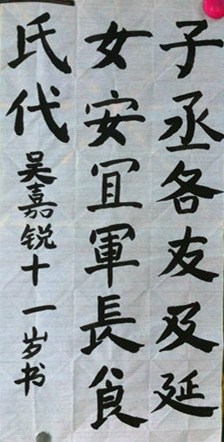 子丞各友及延
女安宜軍長食
氏代
吴嘉锐十一岁书